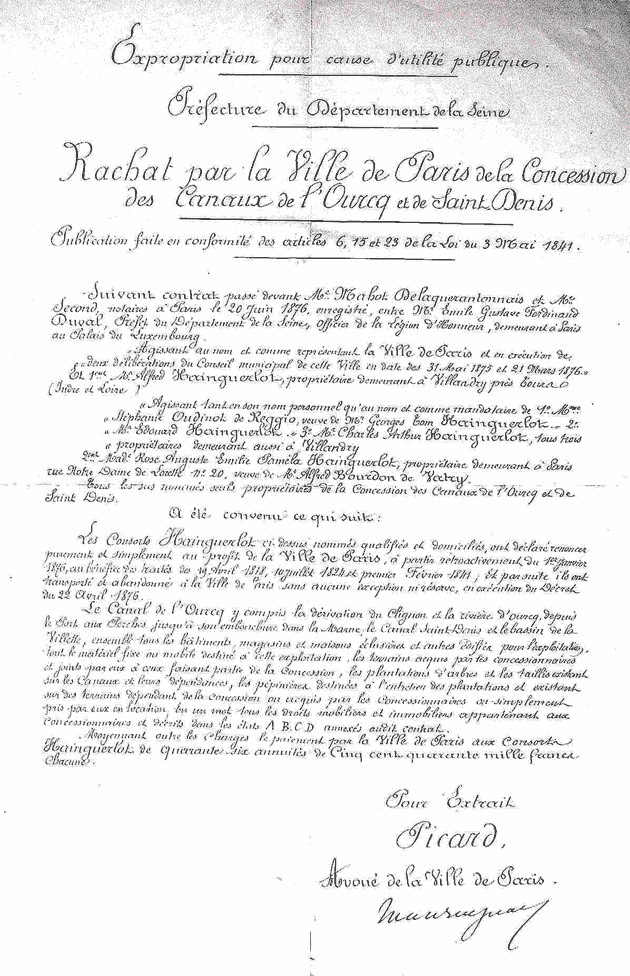 Expropriation pour cause d'utilité publique.
Préfecture du Département de la Seine
Rachat par la Ville de Paris de la Concession
des Canaux de l'Ourcq et de Saint Denis.
Publication faite en conformité des articles 6, 15 et 23 de la Loi du 3 Mai 1841.
Suivant contrat passé devant Me. Mahot Delaquerantonnais et Me.
Second, notaires à Paris le 20 Juin 1876, enregistré, entre Mr. Emile Gustave Ferdinand
Duval, Préfet du Département de la Seine, officier de la Légion d'Honneur, demeurant à Paris
au Palais du Luxembourg.
"Agissant au nom et comme représentant la Ville de Paris et en exécution de
"deux délibérations du Conseil municipal de cette Ville en date des 31 Mai 1875 et 21 Mars 1876."
Et 1ent Mr. Alfred Hainguerlot, propriétaire demeurant à Villandry près Tours
(Indre et Loire)
"Agissant tant en son nom personnel qu'au nom et comme mandataire de 1° Mme
"Stéphanie Oudinot de Reggio, veuve de Mr. Georges Tom Hainguerlot _ 2°
"Mr. Edouard Hainguerlot _ 3° Mr. Charles Arthur Hainguerlot, tous trois
"propriétaires demeurant aussi à Villandry
2ent Made. Rose Auguste Emilie Paméla Hainguerlot, propriétaire demeurant à Paris
rue Notre Dame de Lorette no. 20, veuve de Mr. Alfred Bourdon de Vatry.
Tous les sus nommés seuls propriétaires de la Concession des Canaux de l'Ourcq et de
Saint Denis.
A été convenu ce qui suit:
Les Consorts Hainguerlot ci-dessus nommés qualifiés et domiciliés, ont déclaré renoncer
purement et simplement au profit de la Ville de Paris, à partir rétroactivement du 1er Janvier
1876, au bénéfice des traités des 19 Avril 1818, 10 juillet 1824 et premier Février 1841; Et par suite ils ont
transporté et abandonné à la Ville de Paris sans aucune exception ni réserve, en exécution du Décret
du 22 Avril 1876.
Le Canal de l'Ourcq y compris la dérivation du Clignon et la rivière d'Ourcq, depuis
le Port aux Perches jusqu'à son embouchure dans la Marne, le Canal Saint-Denis et le bassin de la
Villette, ensemble tous les bâtiments, magasins et maisons éclusières et autres édifiés pour l'exploitation,
tout le matériel fixe ou mobile destiné à cette exploitation, les terrains acquis par les concessionnaires
et joints par eux à ceux faisant partie de la Concession, les plantations d'arbres et les taillis existant
sur les Canaux et leurs dépendances, les pépinières destinées à l'entretien des plantations et existant
sur des terrains dépendant de la concession ou acquis par les Concessionnaires ou simplement
pris par eux en location. En un mot tous les droits mobiliers et immobiliers appartenant aux
Concessionnaires et décrits dans les états A B C D annexés audit contrat.
Moyennant outre les charges le paiement par la Ville de Paris aux Consorts
Hainguerlot de quarante six annuités de Cinq cent quarante mille francs
Chacune.
Pour Extrait
Picard,
Avoué de la Ville de Paris.